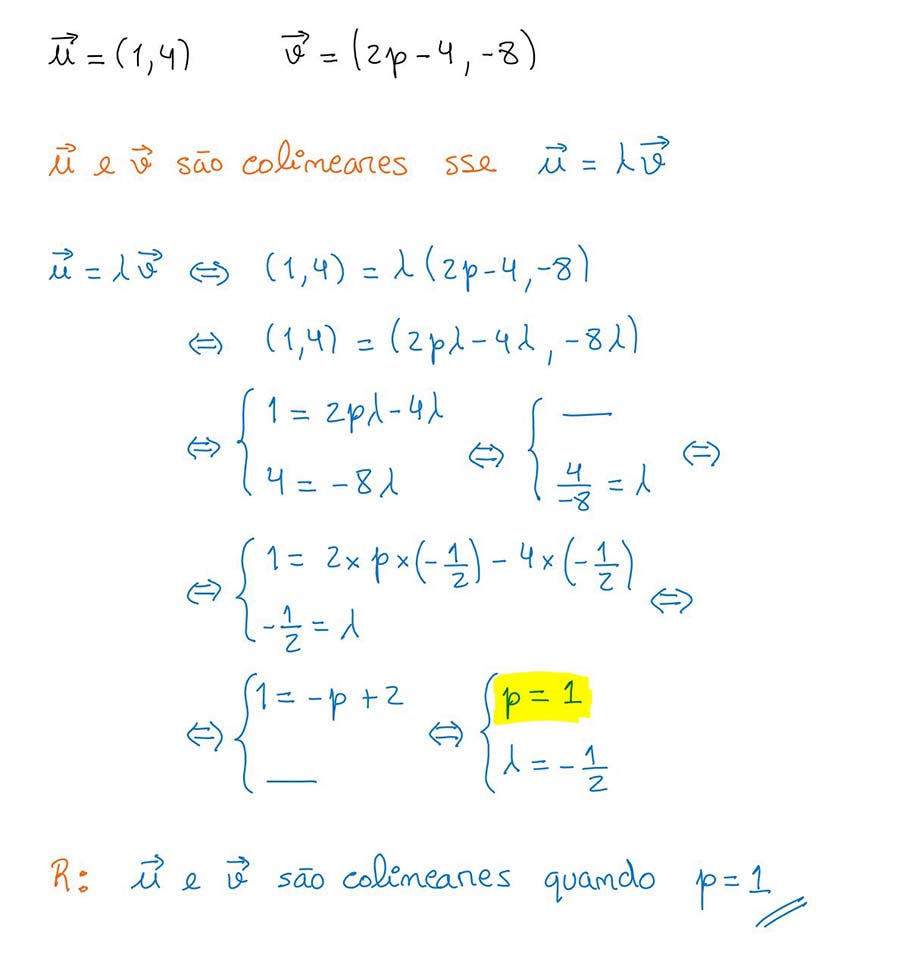 u⃗ = (1,4)    v⃗ = (2p-4, -8)
u⃗ e v⃗ são colineares sse u⃗ = λv⃗
u⃗ = λv⃗ ⇔ (1,4) = λ(2p-4,-8)
⇔ (1,4) = (2pλ-4λ, -8λ)
⇔ { 1 = 2pλ-4λ ; 4 = -8λ ⇔ { — ; 4/-8 = λ ⇔
⇔ { 1 = 2×p×(-1/2) - 4×(-1/2) ; -1/2 = λ ⇔
⇔ { 1 = -p+2 ; — ⇔ { p = 1 ; λ = -1/2
R: u⃗ e v⃗ são colineares quando p = 1